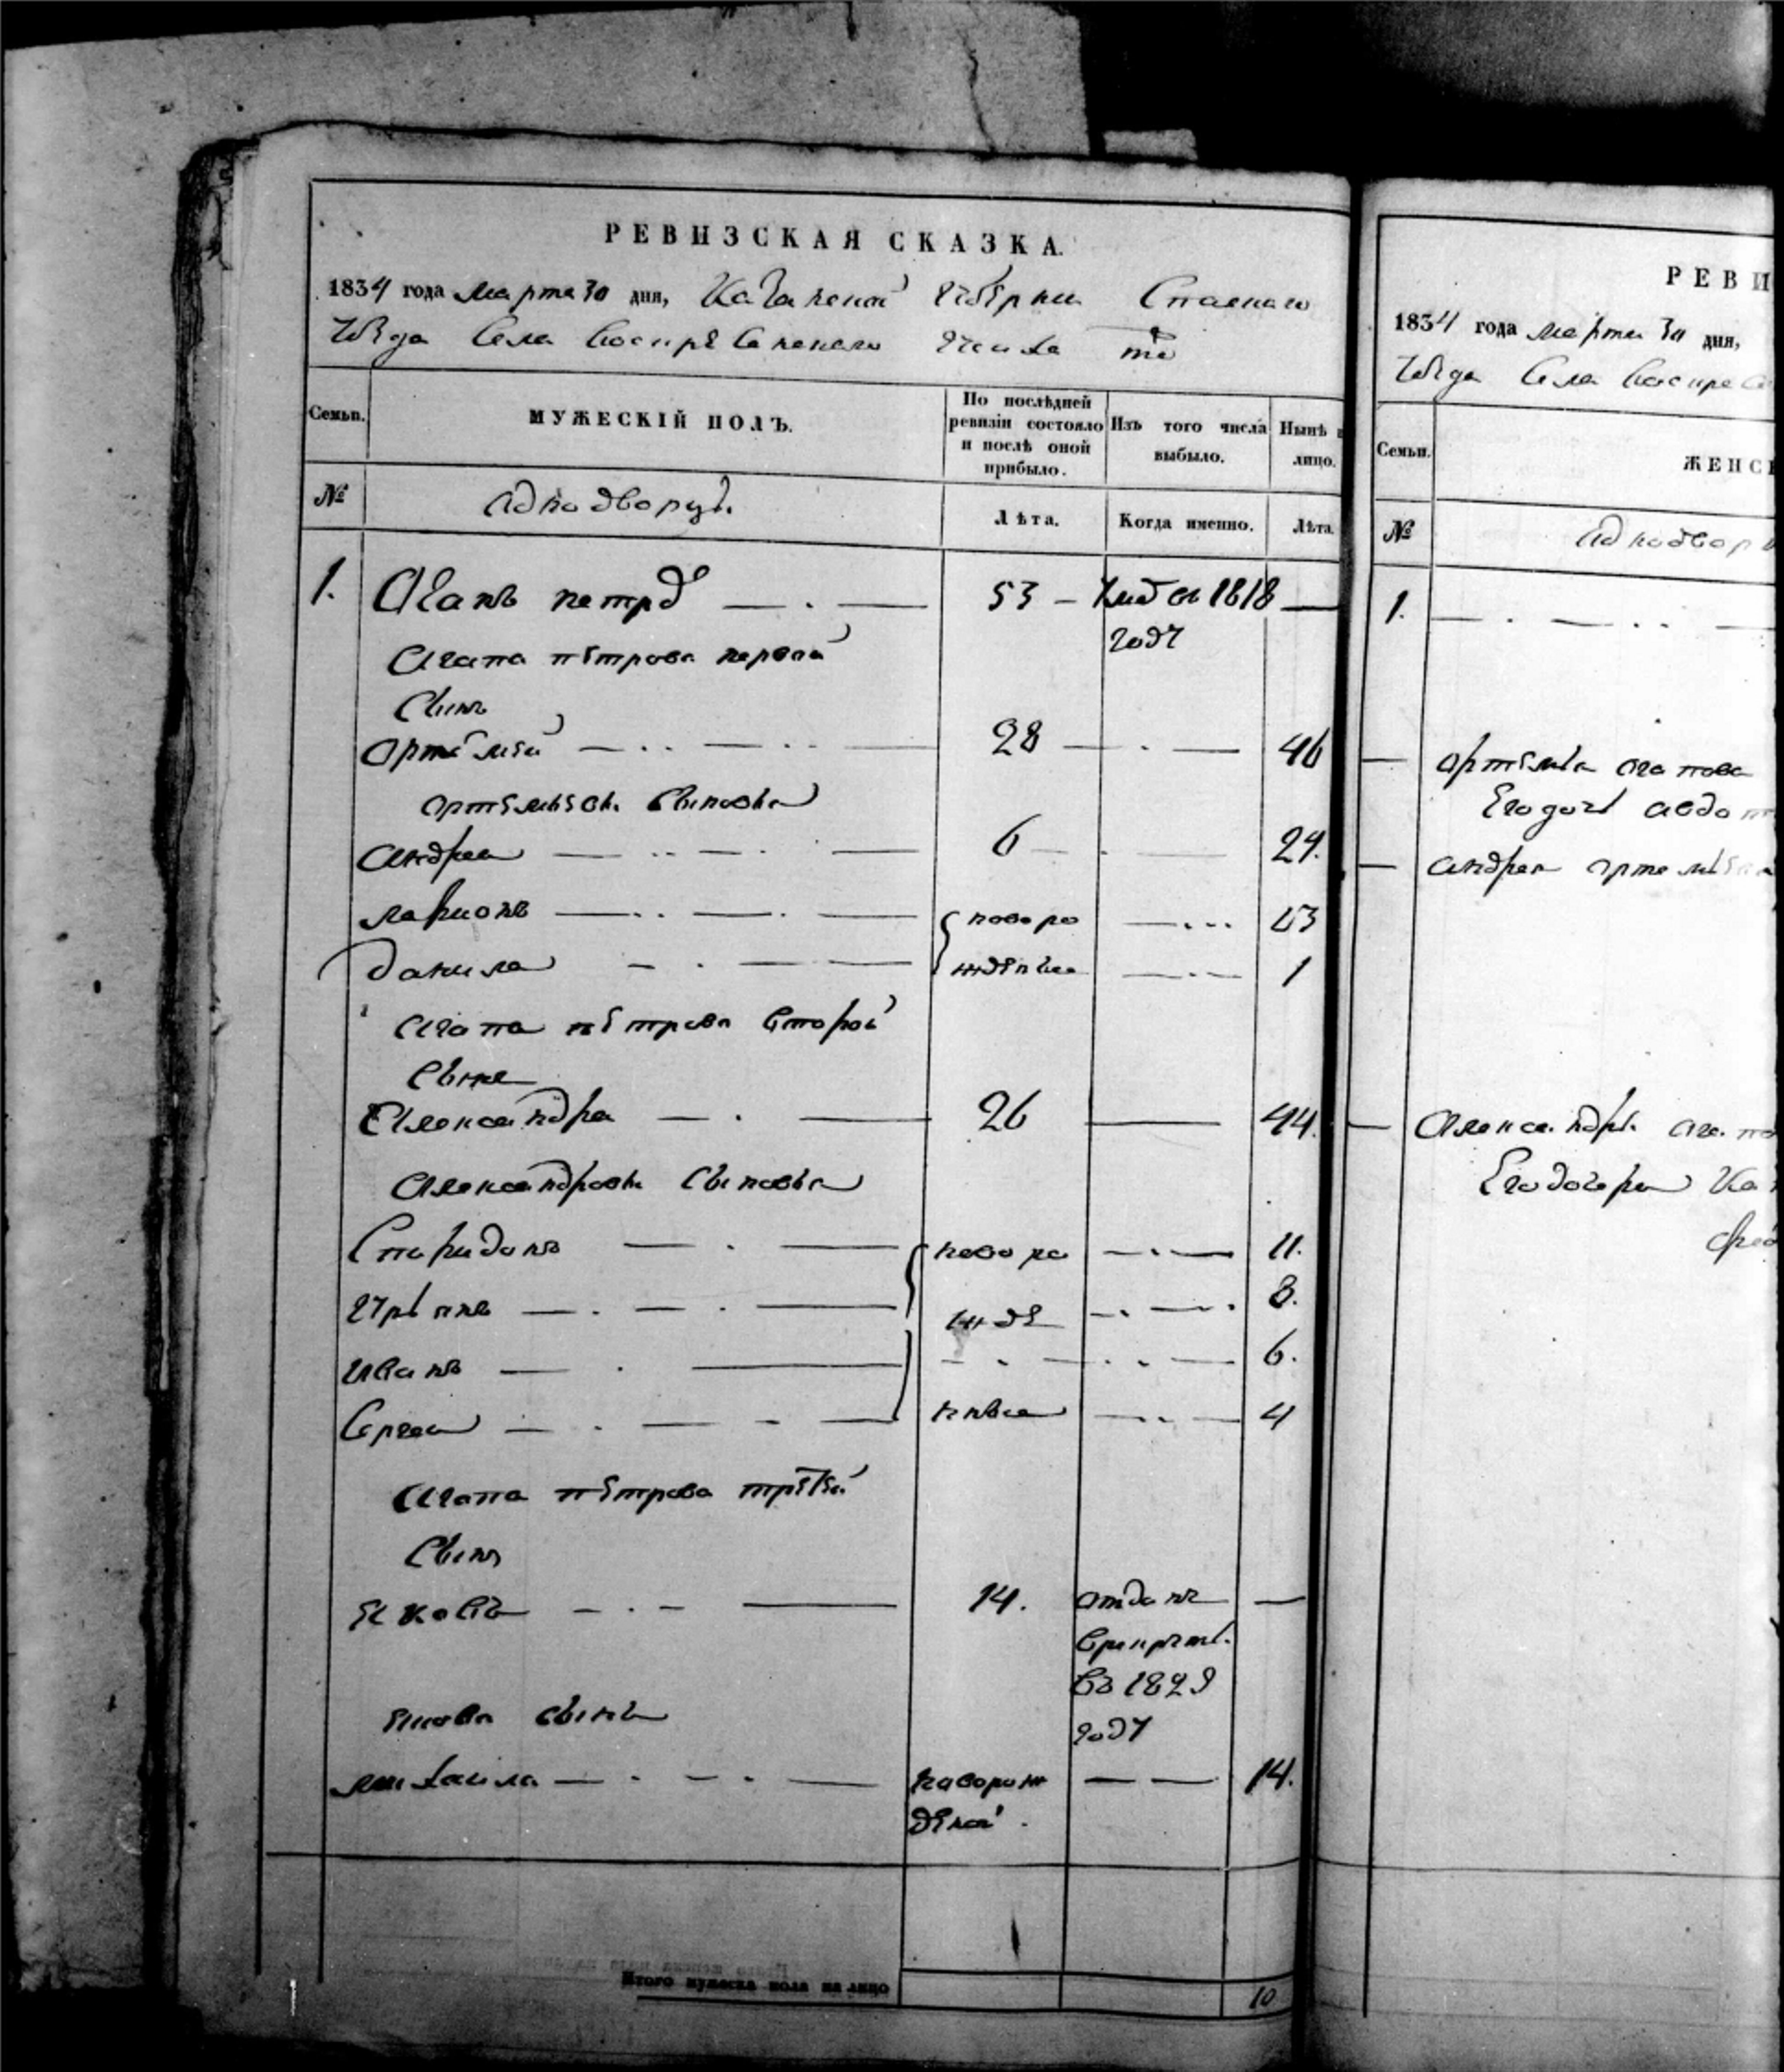 РЕВИЗСКАЯ СКАЗКА.
1834 года марта 30 дня, Казанской губернии Спаскаго
уезда села Воскресенскаго
Семьи. МУЖЕСКІЙ ПОЛЪ. По послѣдней ревизіи состояло и послѣ оной прибыло. Изъ того числа выбыло. Нынѣ лицо.
№ Аднодворцы. Лѣта. Когда именно. Лѣта.
1. Агапъ петров 53 умре въ 1818
году
Агапа петрова первой
Сынъ
Артемей 28 46
Артемьевы Сыновья
Андрей 6 24.
Ларионъ новоро 13
Данила жденые 1
Агапа петрова второй
Сынъ
Александра 26 44.
Александровы Сыновья
Спиридонъ новоро 11.
жде 8.
Иванъ 6.
Сергей нныя 4
Агапа петрова третей
Сынъ
Яковъ 14. отданъ
въ 1829
году
якова сынъ
михаила наворож 14.
деной.
Итого мужеска пола на лицо 10
РЕВИ
1834 года марта 30 дня,
уезда Села Воскресе
Семьи. ЖЕНСК
№ Аднодвор
1.
Артемья агапова
Его дочь авдот
Андрея артемьева
Александры агапо
Его дочери Ка